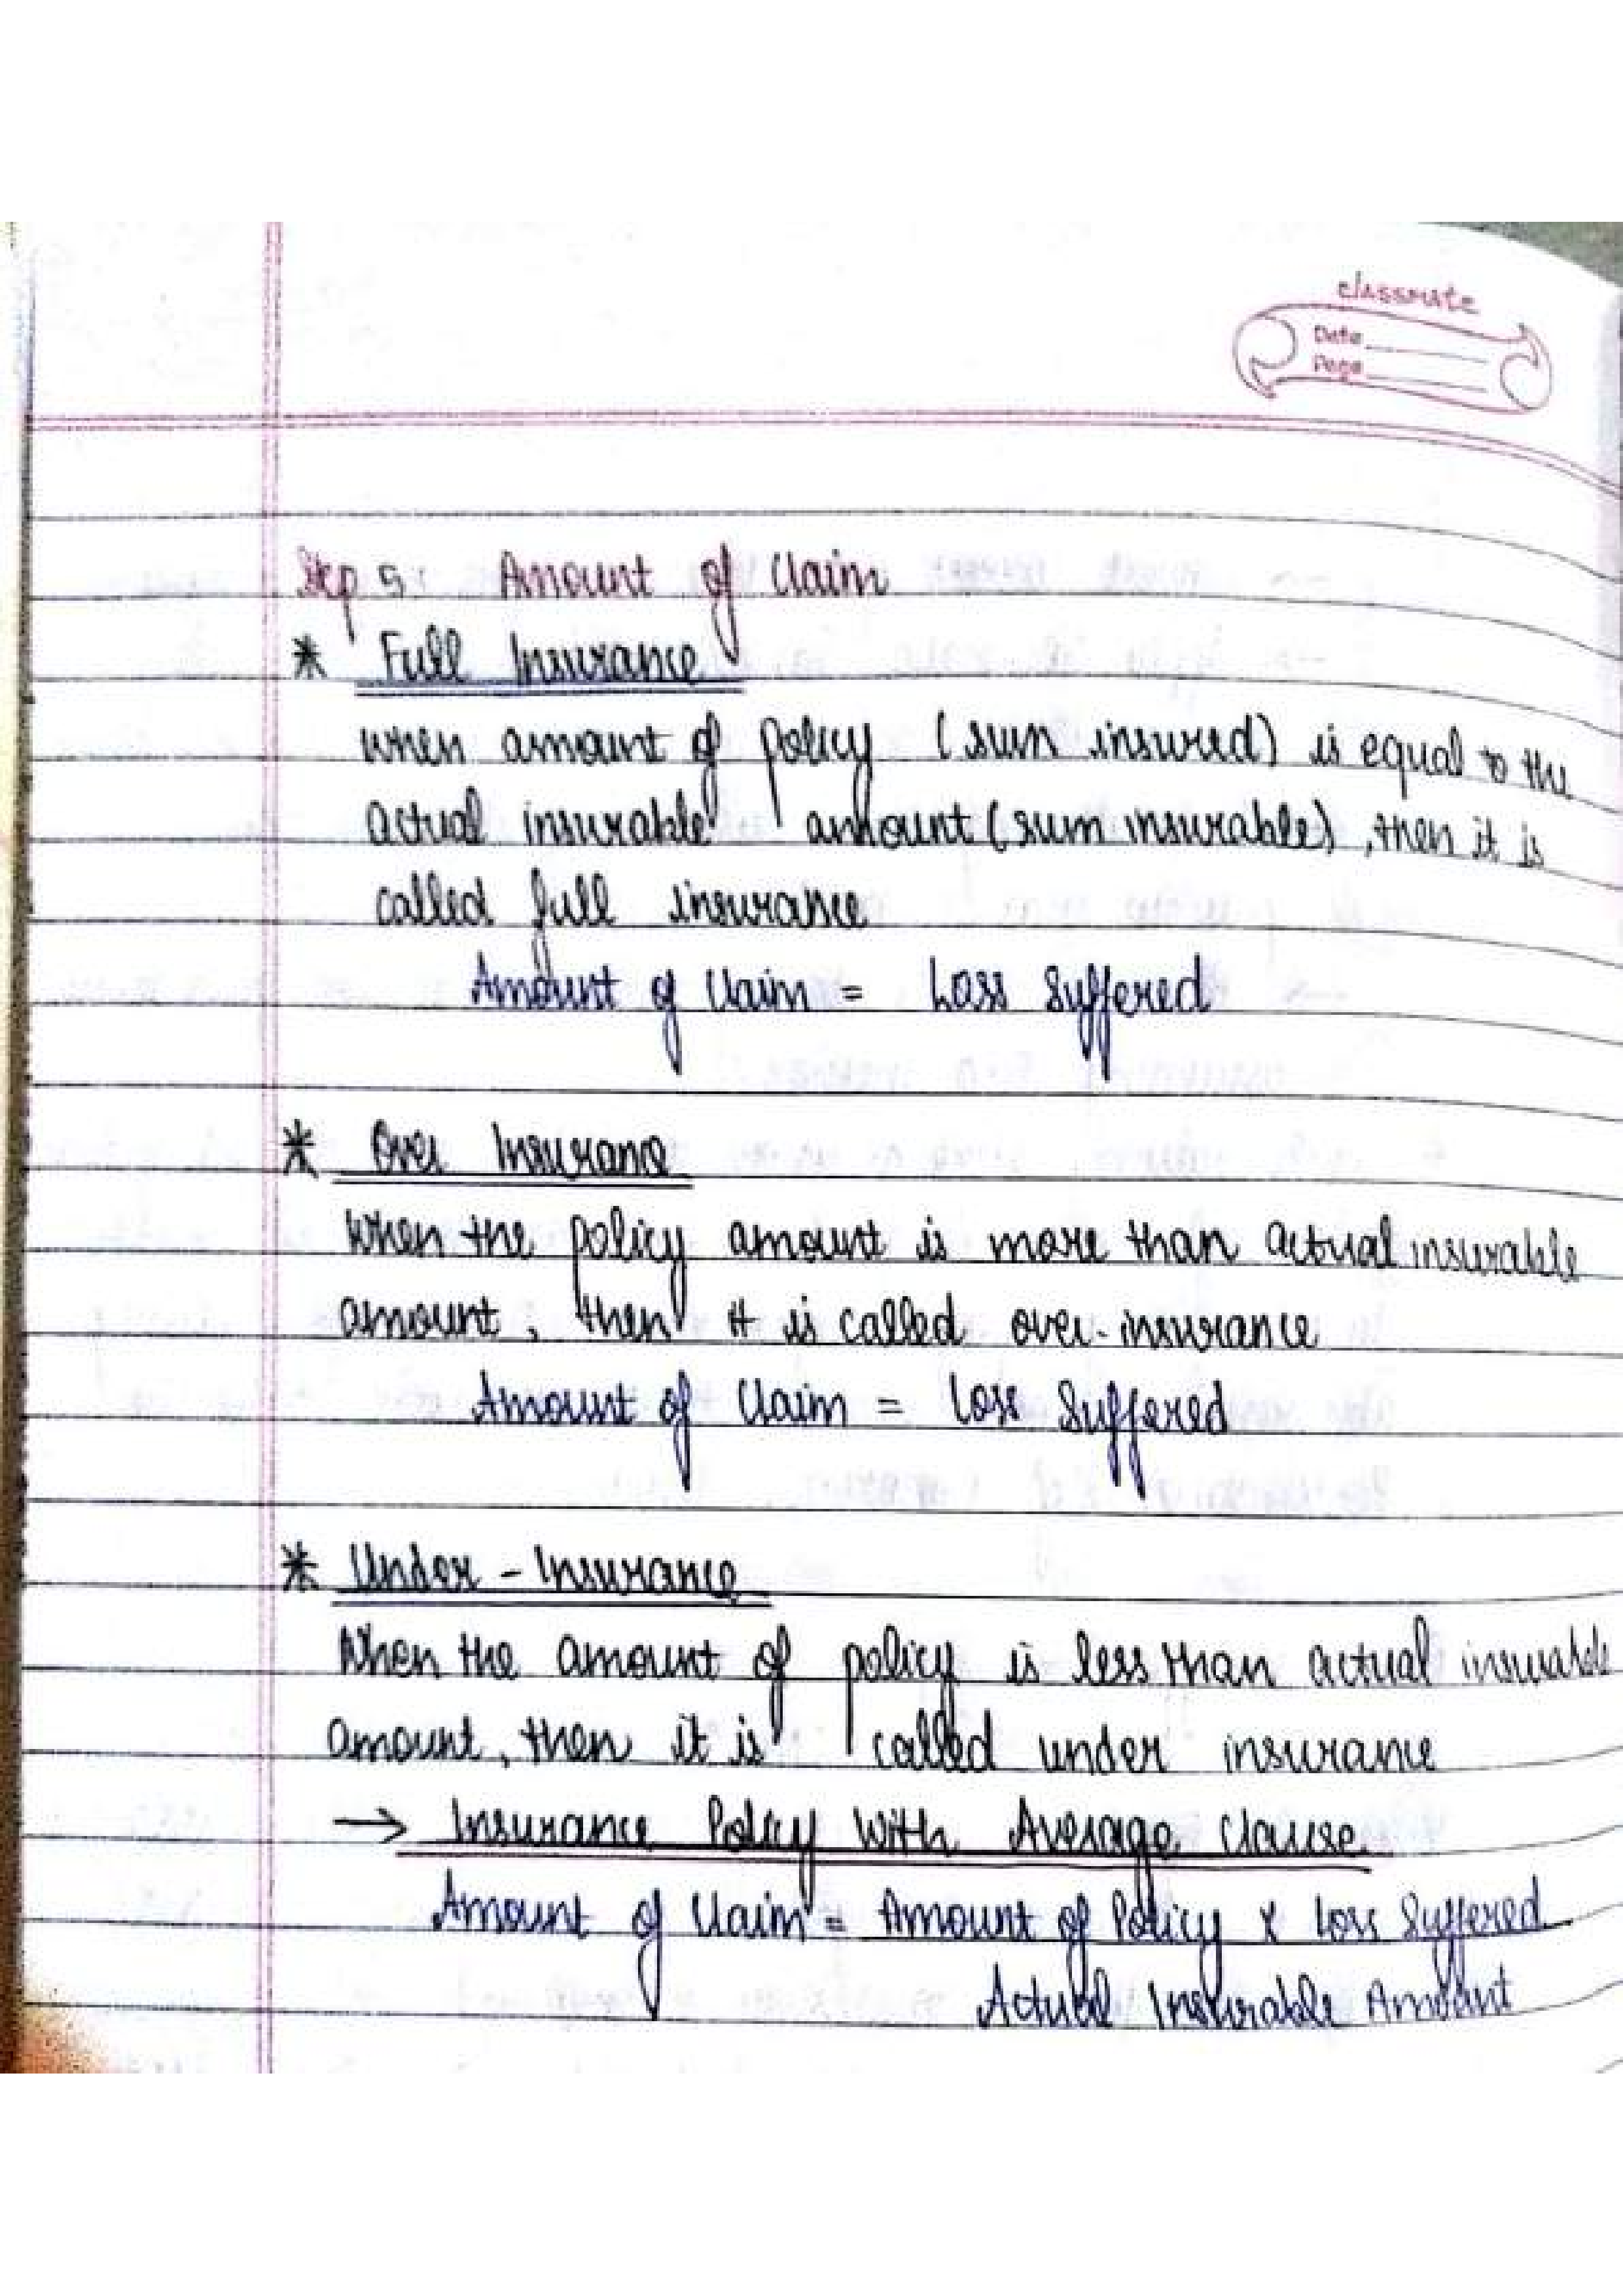 classmate
Date
Page
Step 5: Amount of Claim
* Full Insurance
when amount of policy (sum insured) is equal to the
actual insurable amount (sum insurable), then it is
called full insurance
Amount of Claim = Loss Suffered
* Over Insurance
When the policy amount is more than actual insurable
amount, then it is called over-insurance
Amount of Claim = Loss Suffered
* Under-Insurance
When the amount of policy is less than actual insurable
amount, then it is called under insurance
→ Insurance Policy With Average Clause
Amount of Claim = Amount of Policy x Loss Suffered
Actual Insurable Amount